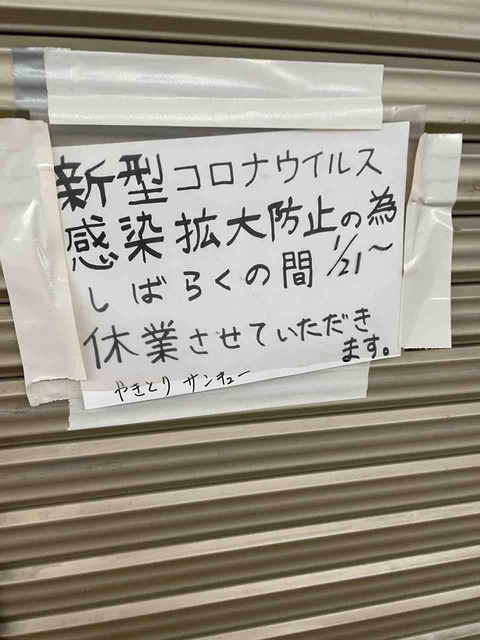 新型コロナウイルス
感染拡大防止の為
しばらくの間 1/21～
休業させていただき
ます。
やきとり サンキュー